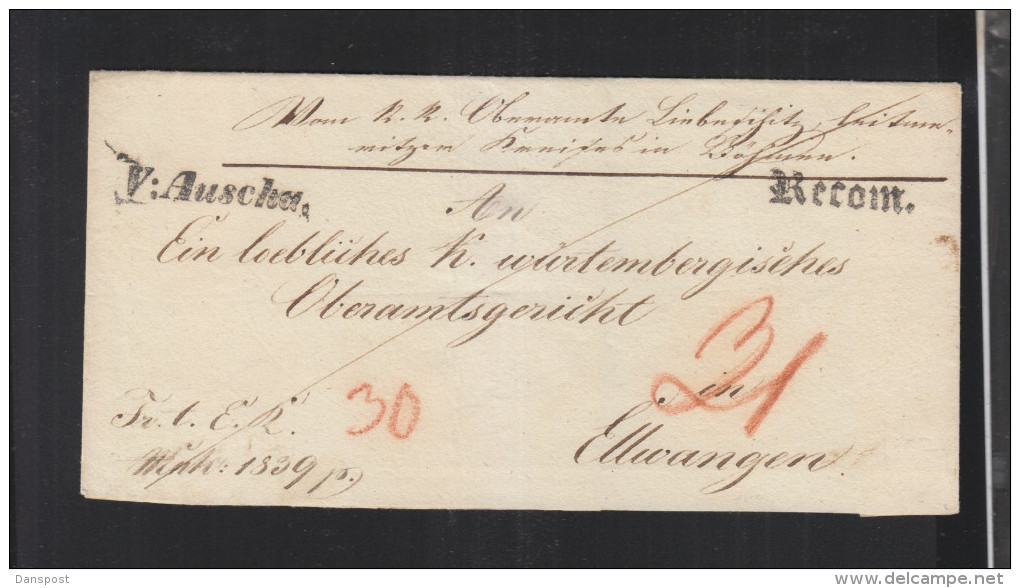 Vom K. K. Oberamte Liebeschitz, Leitme-
ritzer Kreises in Böhmen.
V: Auscha.
Recom.
An
Ein loebliches K. würtembergisches
Oberamtsgericht
31
in
30
Fr. t. E. K.
1839
Ellwangen
Danspost
www.delcampe.net